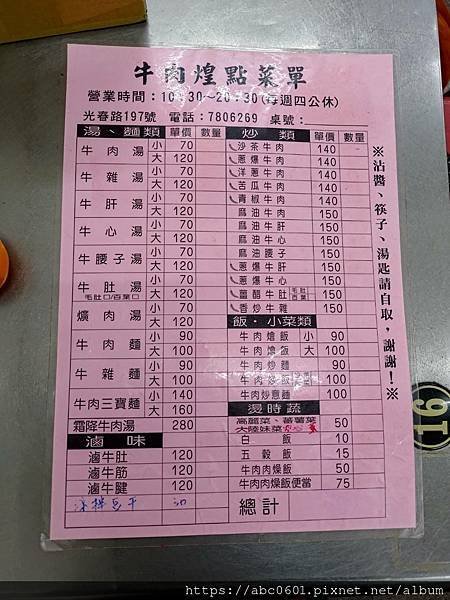 牛肉煌點菜單
營業時間：10：30～20：30(每週四公休)
光春路197號 電話：7806269 桌號：
湯、麵類 單價 數量
牛肉湯 小 70
大 120
牛雜湯 小 70
大 120
牛肝湯 小 70
大 120
牛心湯 小 70
大 120
牛腰子湯 小 70
大 120
牛肚湯 小 70
毛肚□/百葉□ 大 120
爌肉湯 小 70
大 120
牛肉麵 小 90
大 100
牛雜麵 小 90
大 100
牛肉三寶麵 小 140
大 160
霜降牛肉湯 280
滷味
滷牛肚 120
滷牛筋 120
滷牛腱 120
涼拌豆干 30
炒類 單價 數量
沙茶牛肉 140
蔥爆牛肉 140
洋蔥牛肉 140
苦瓜牛肉 140
青椒牛肉 140
麻油牛肉 150
麻油牛肝 150
麻油牛心 150
麻油腰子 150
蔥爆牛肝 150
蔥爆牛心 150
薑醋牛肚 毛肚 百葉 150
香炒牛雜 150
飯・小菜類
牛肉燴飯 小 90
牛肉燴飯 大 100
牛肉炒麵 90
牛肉炒飯 100
牛肉炒意麵 100
燙時蔬
高麗菜、蕃薯葉
大陸妹菜 50
白飯 10
五穀飯 15
牛肉肉燥飯 50
牛肉肉燥飯便當 75
總計
※沾醬、筷子、湯匙請自取，謝謝！※
16
https://abc0601.pixnet.net/album